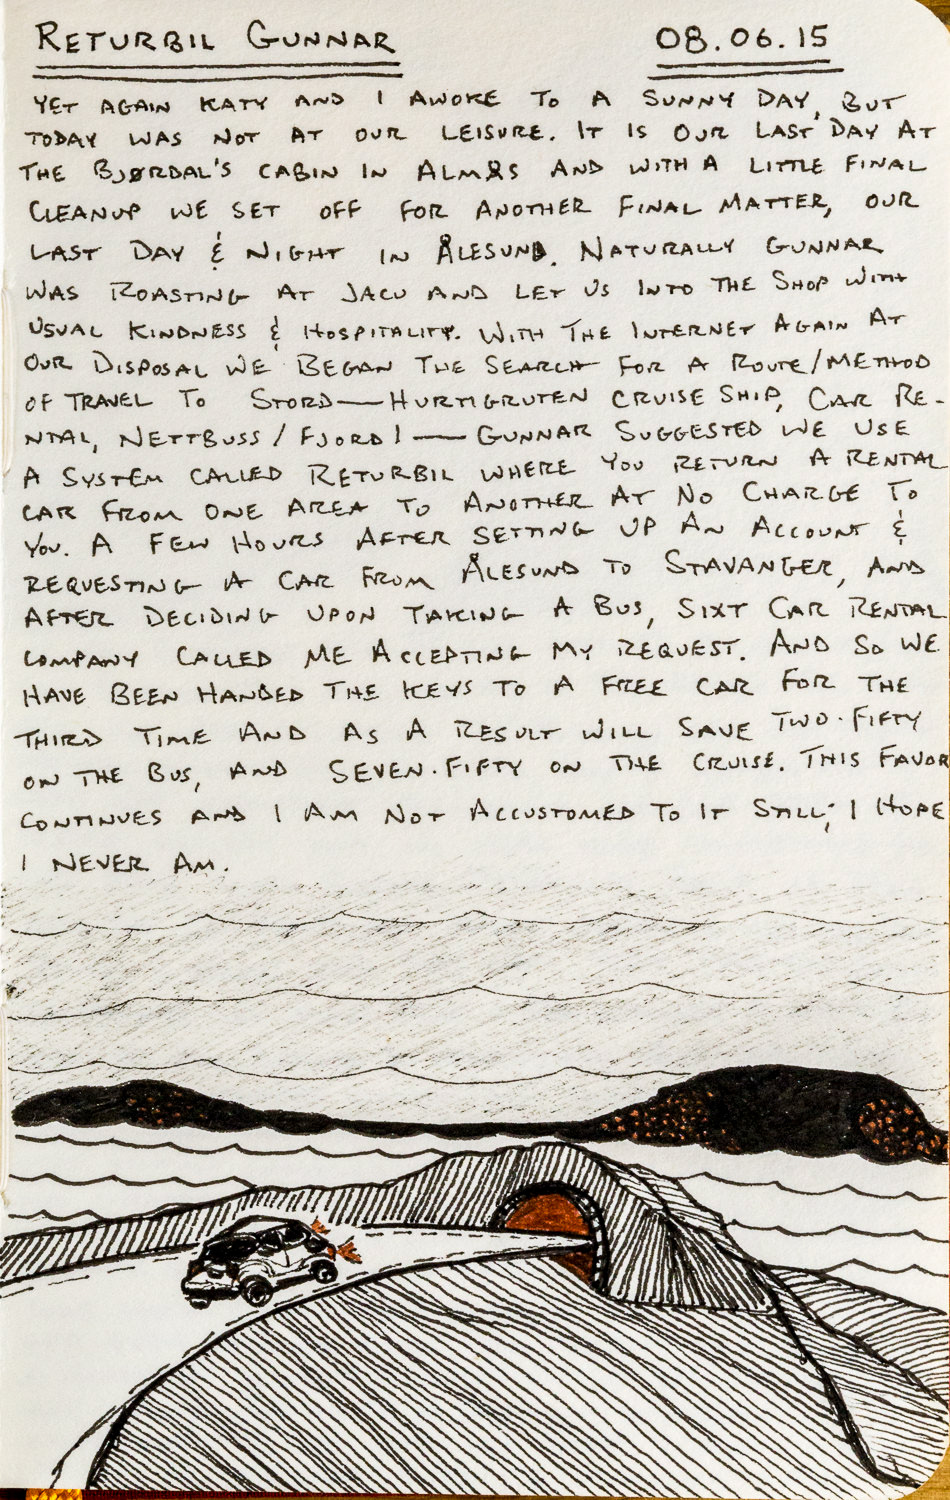 RETURBIL GUNNAR 08.06.15
YET AGAIN KATY AND I AWOKE TO A SUNNY DAY, BUT
TODAY WAS NOT AT OUR LEISURE. IT IS OUR LAST DAY AT
THE BJØRDAL'S CABIN IN ALMÅS AND WITH A LITTLE FINAL
CLEANUP WE SET OFF FOR ANOTHER FINAL MATTER, OUR
LAST DAY & NIGHT IN ÅLESUND. NATURALLY GUNNAR
WAS ROASTING AT JACU AND LET US INTO THE SHOP WITH
USUAL KINDNESS & HOSPITALITY. WITH THE INTERNET AGAIN AT
OUR DISPOSAL WE BEGAN THE SEARCH FOR A ROUTE/METHOD
OF TRAVEL TO STORD—HURTIGRUTEN CRUISE SHIP, CAR RE-
NTAL, NETTBUSS/FJORD1—GUNNAR SUGGESTED WE USE
A SYSTEM CALLED RETURBIL WHERE YOU RETURN A RENTAL
CAR FROM ONE AREA TO ANOTHER AT NO CHARGE TO
YOU. A FEW HOURS AFTER SETTING UP AN ACCOUNT &
REQUESTING A CAR FROM ÅLESUND TO STAVANGER, AND
AFTER DECIDING UPON TAKING A BUS, SIXT CAR RENTAL
COMPANY CALLED ME ACCEPTING MY REQUEST. AND SO WE
HAVE BEEN HANDED THE KEYS TO A FREE CAR FOR THE
THIRD TIME AND AS A RESULT WILL SAVE TWO·FIFTY
ON THE BUS, AND SEVEN·FIFTY ON THE CRUISE. THIS FAVOR
CONTINUES AND I AM NOT ACCUSTOMED TO IT STILL; I HOPE
I NEVER AM.